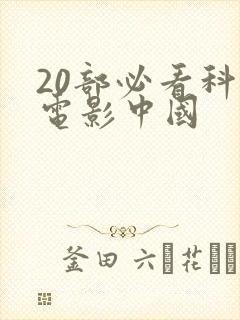 20部必看科
電影中國
釜田 六 花